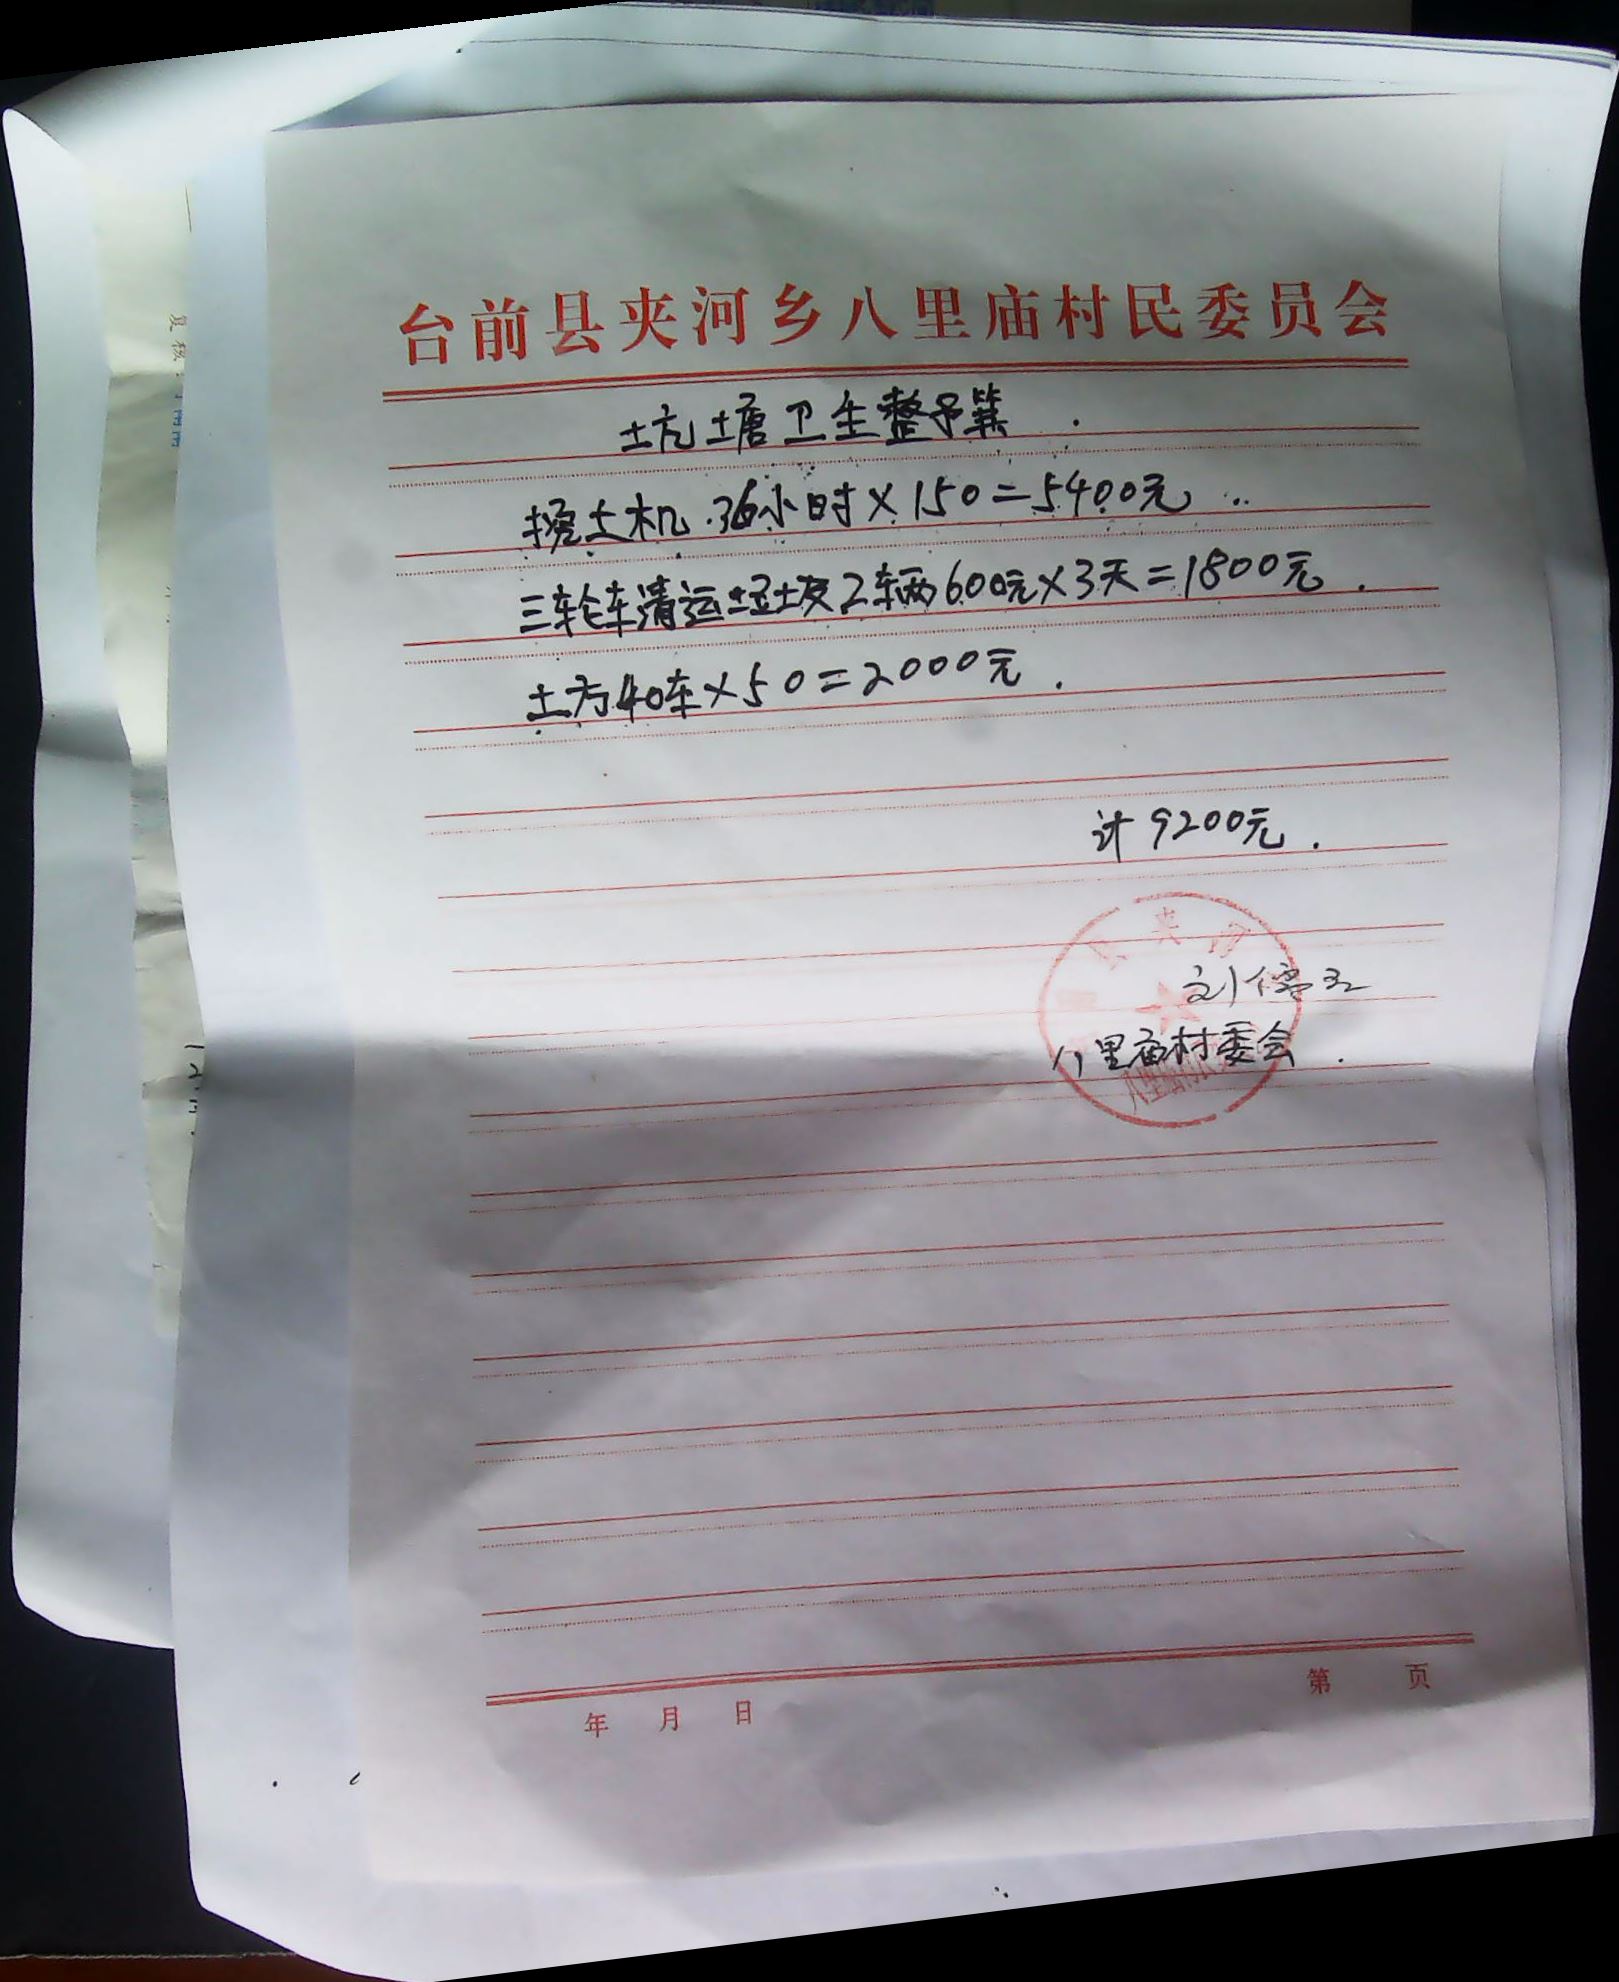 台前县夹河乡八里庙村民委员会
坑塘卫生整予算
挠土机.36小时×150=5400元
三轮车清运垃圾2车两600元×3天=1800元.
土方40车×50=2000元.
计9200元.
八里庙村委会.
年 月 日
第 页